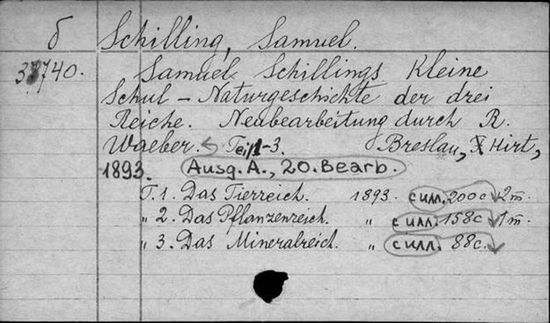 δ Schilling, Samuel.
33740. Samuel Schillings Kleine
Schul-Naturgeschichte der drei
Reiche. Neubearbeitung durch R.
Waeber. Teil 1-3. Breslau, F. Hirt,
1893. Ausg. A., 20. Bearb.
T. 1. Das Tierreich. 1893. с илл. 200с. 2 т
„ 2. Das Pflanzenreich. „ с илл. 158с. 1 т.
„ 3. Das Mineralreich. „ с илл. 88с.